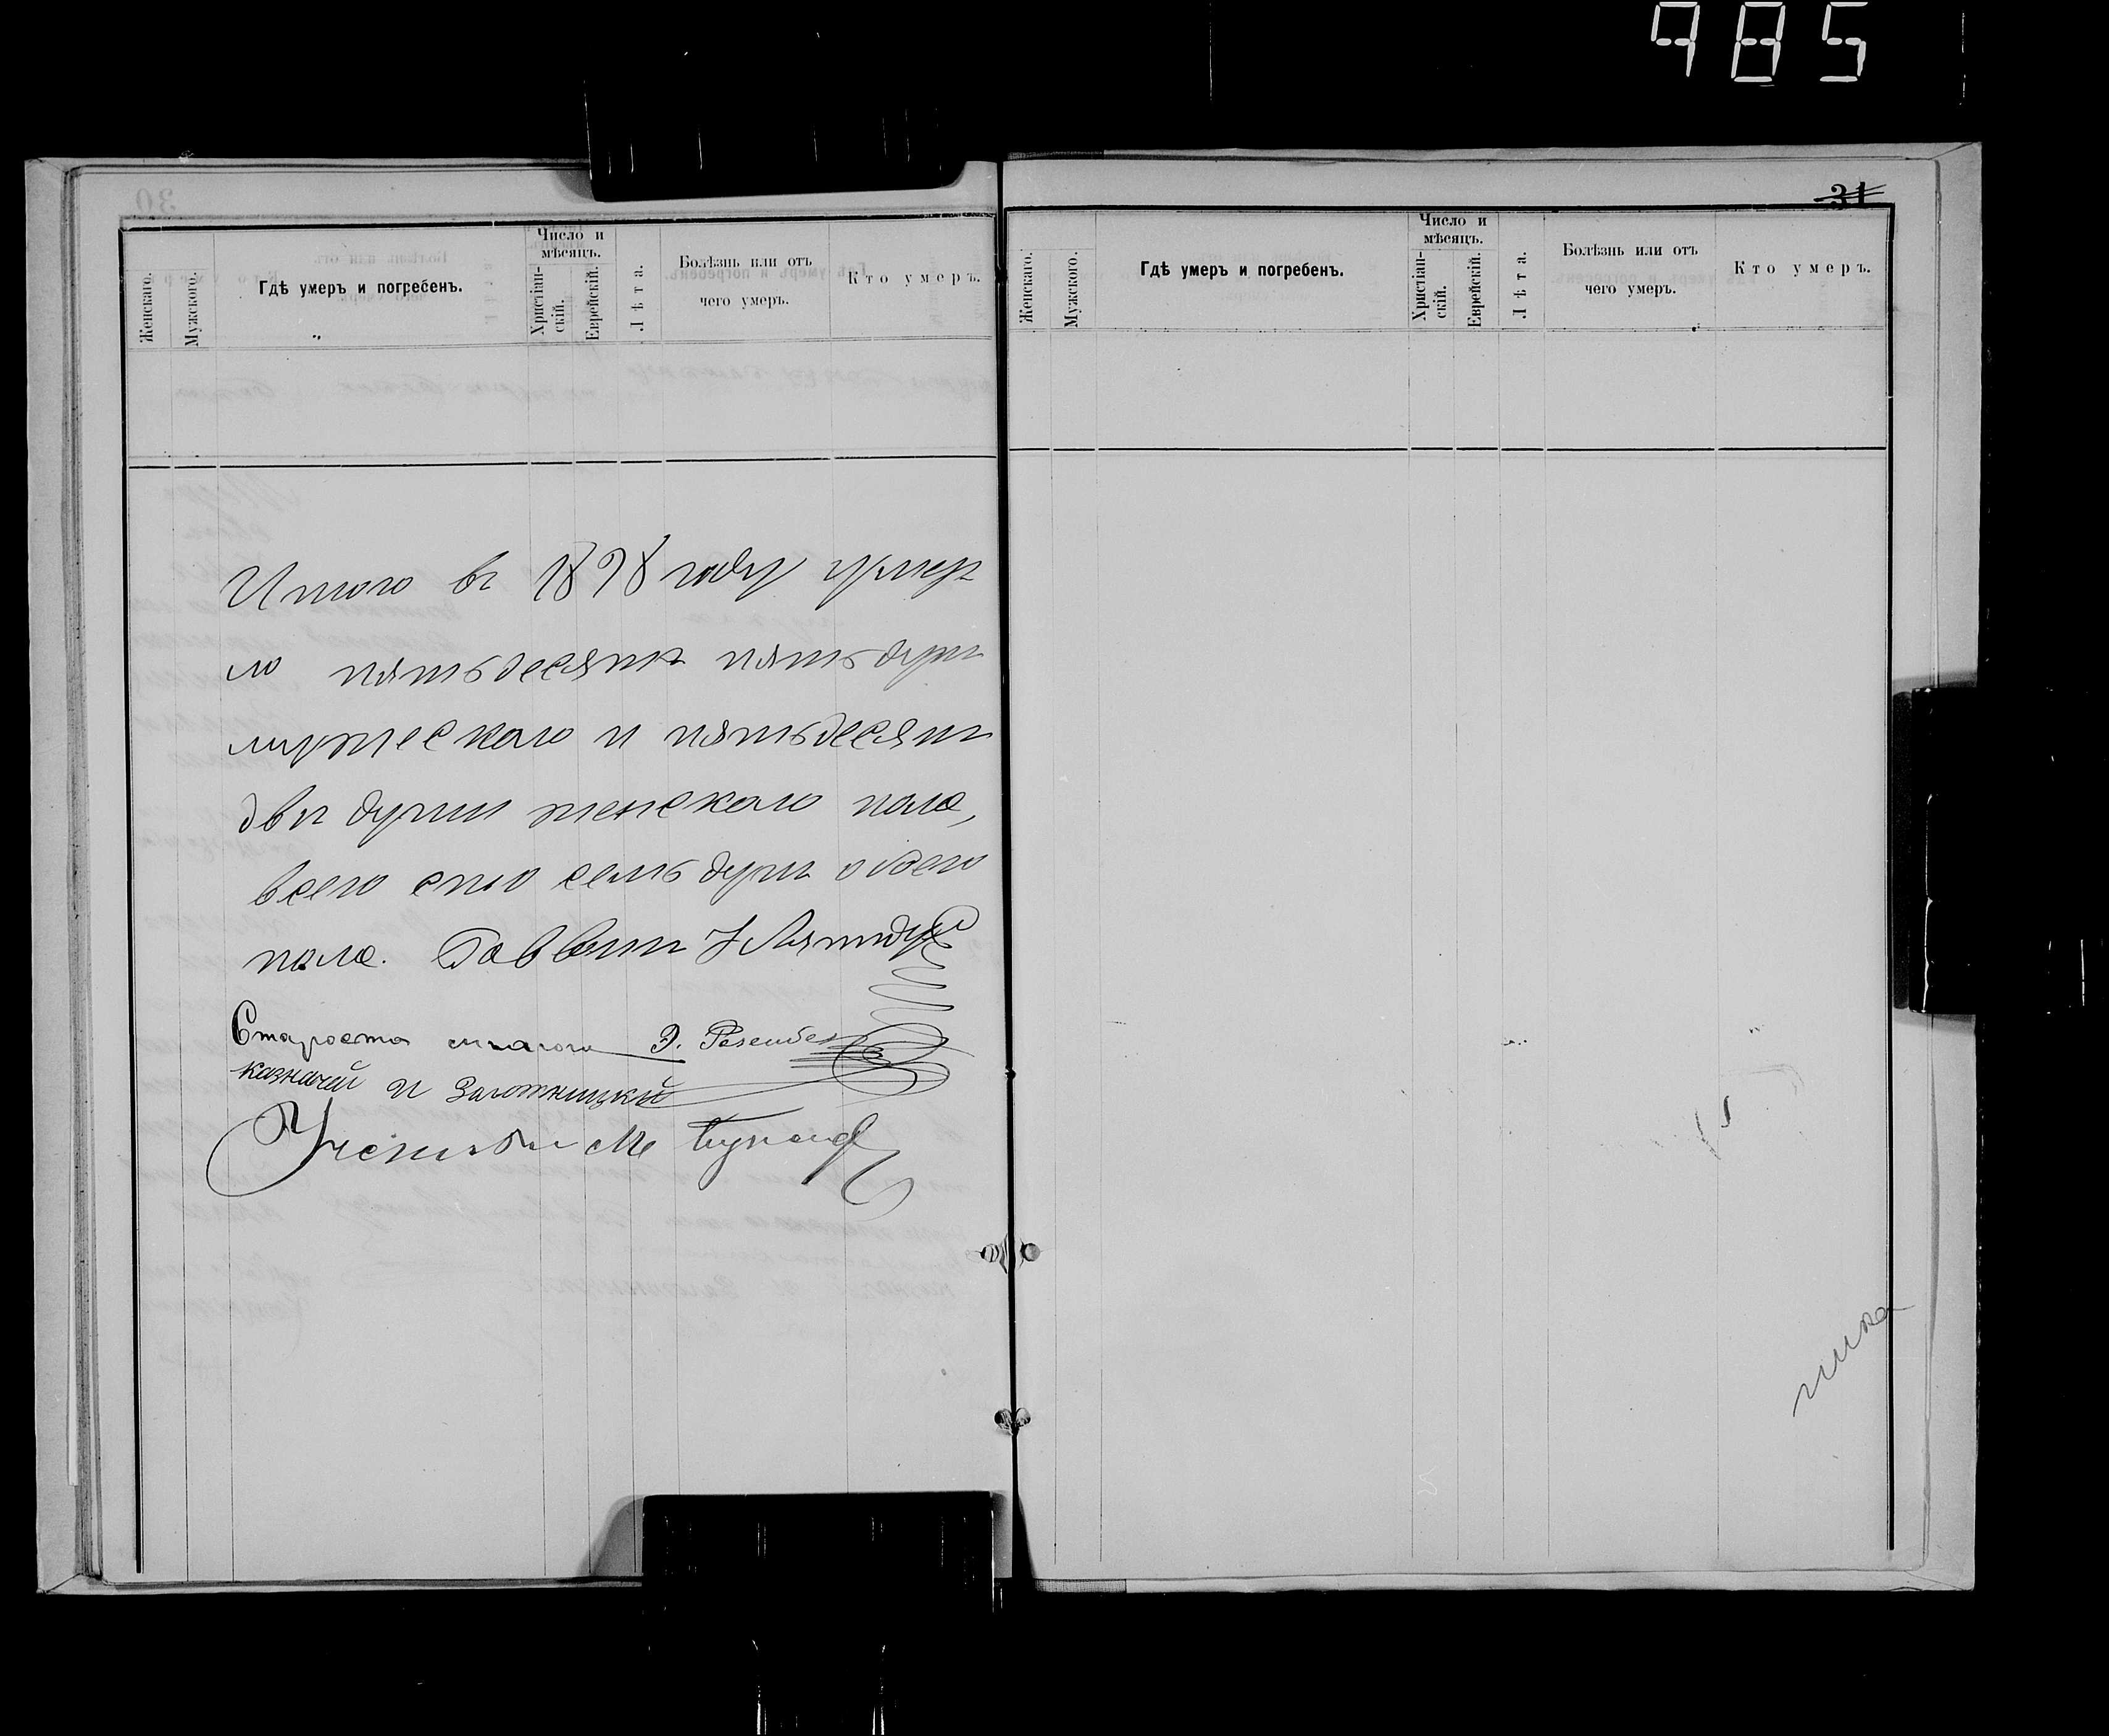 985
Женскаго.
Мужскаго.
Гдѣ умеръ и погребенъ.
Число и мѣсяцъ.
Христіан-
скій.
Еврейскій.
Лѣта.
Болѣзнь или отъ
чего умеръ.
Кто умеръ.
Итого въ 1898 году умер
ло пятьдесятъ пять душъ
мужескаго и пятьдесятъ
двѣ души женскаго пола,
всего сто семь душъ обоего
пола. Раввинъ
Староста
казначей И
Ученый
31
Женскаго.
Мужскаго.
Гдѣ умеръ и погребенъ.
Число и
мѣсяцъ.
Христіан-
скій.
Еврейскій.
Лѣта.
Болѣзнь или отъ
чего умеръ.
Кто умеръ.